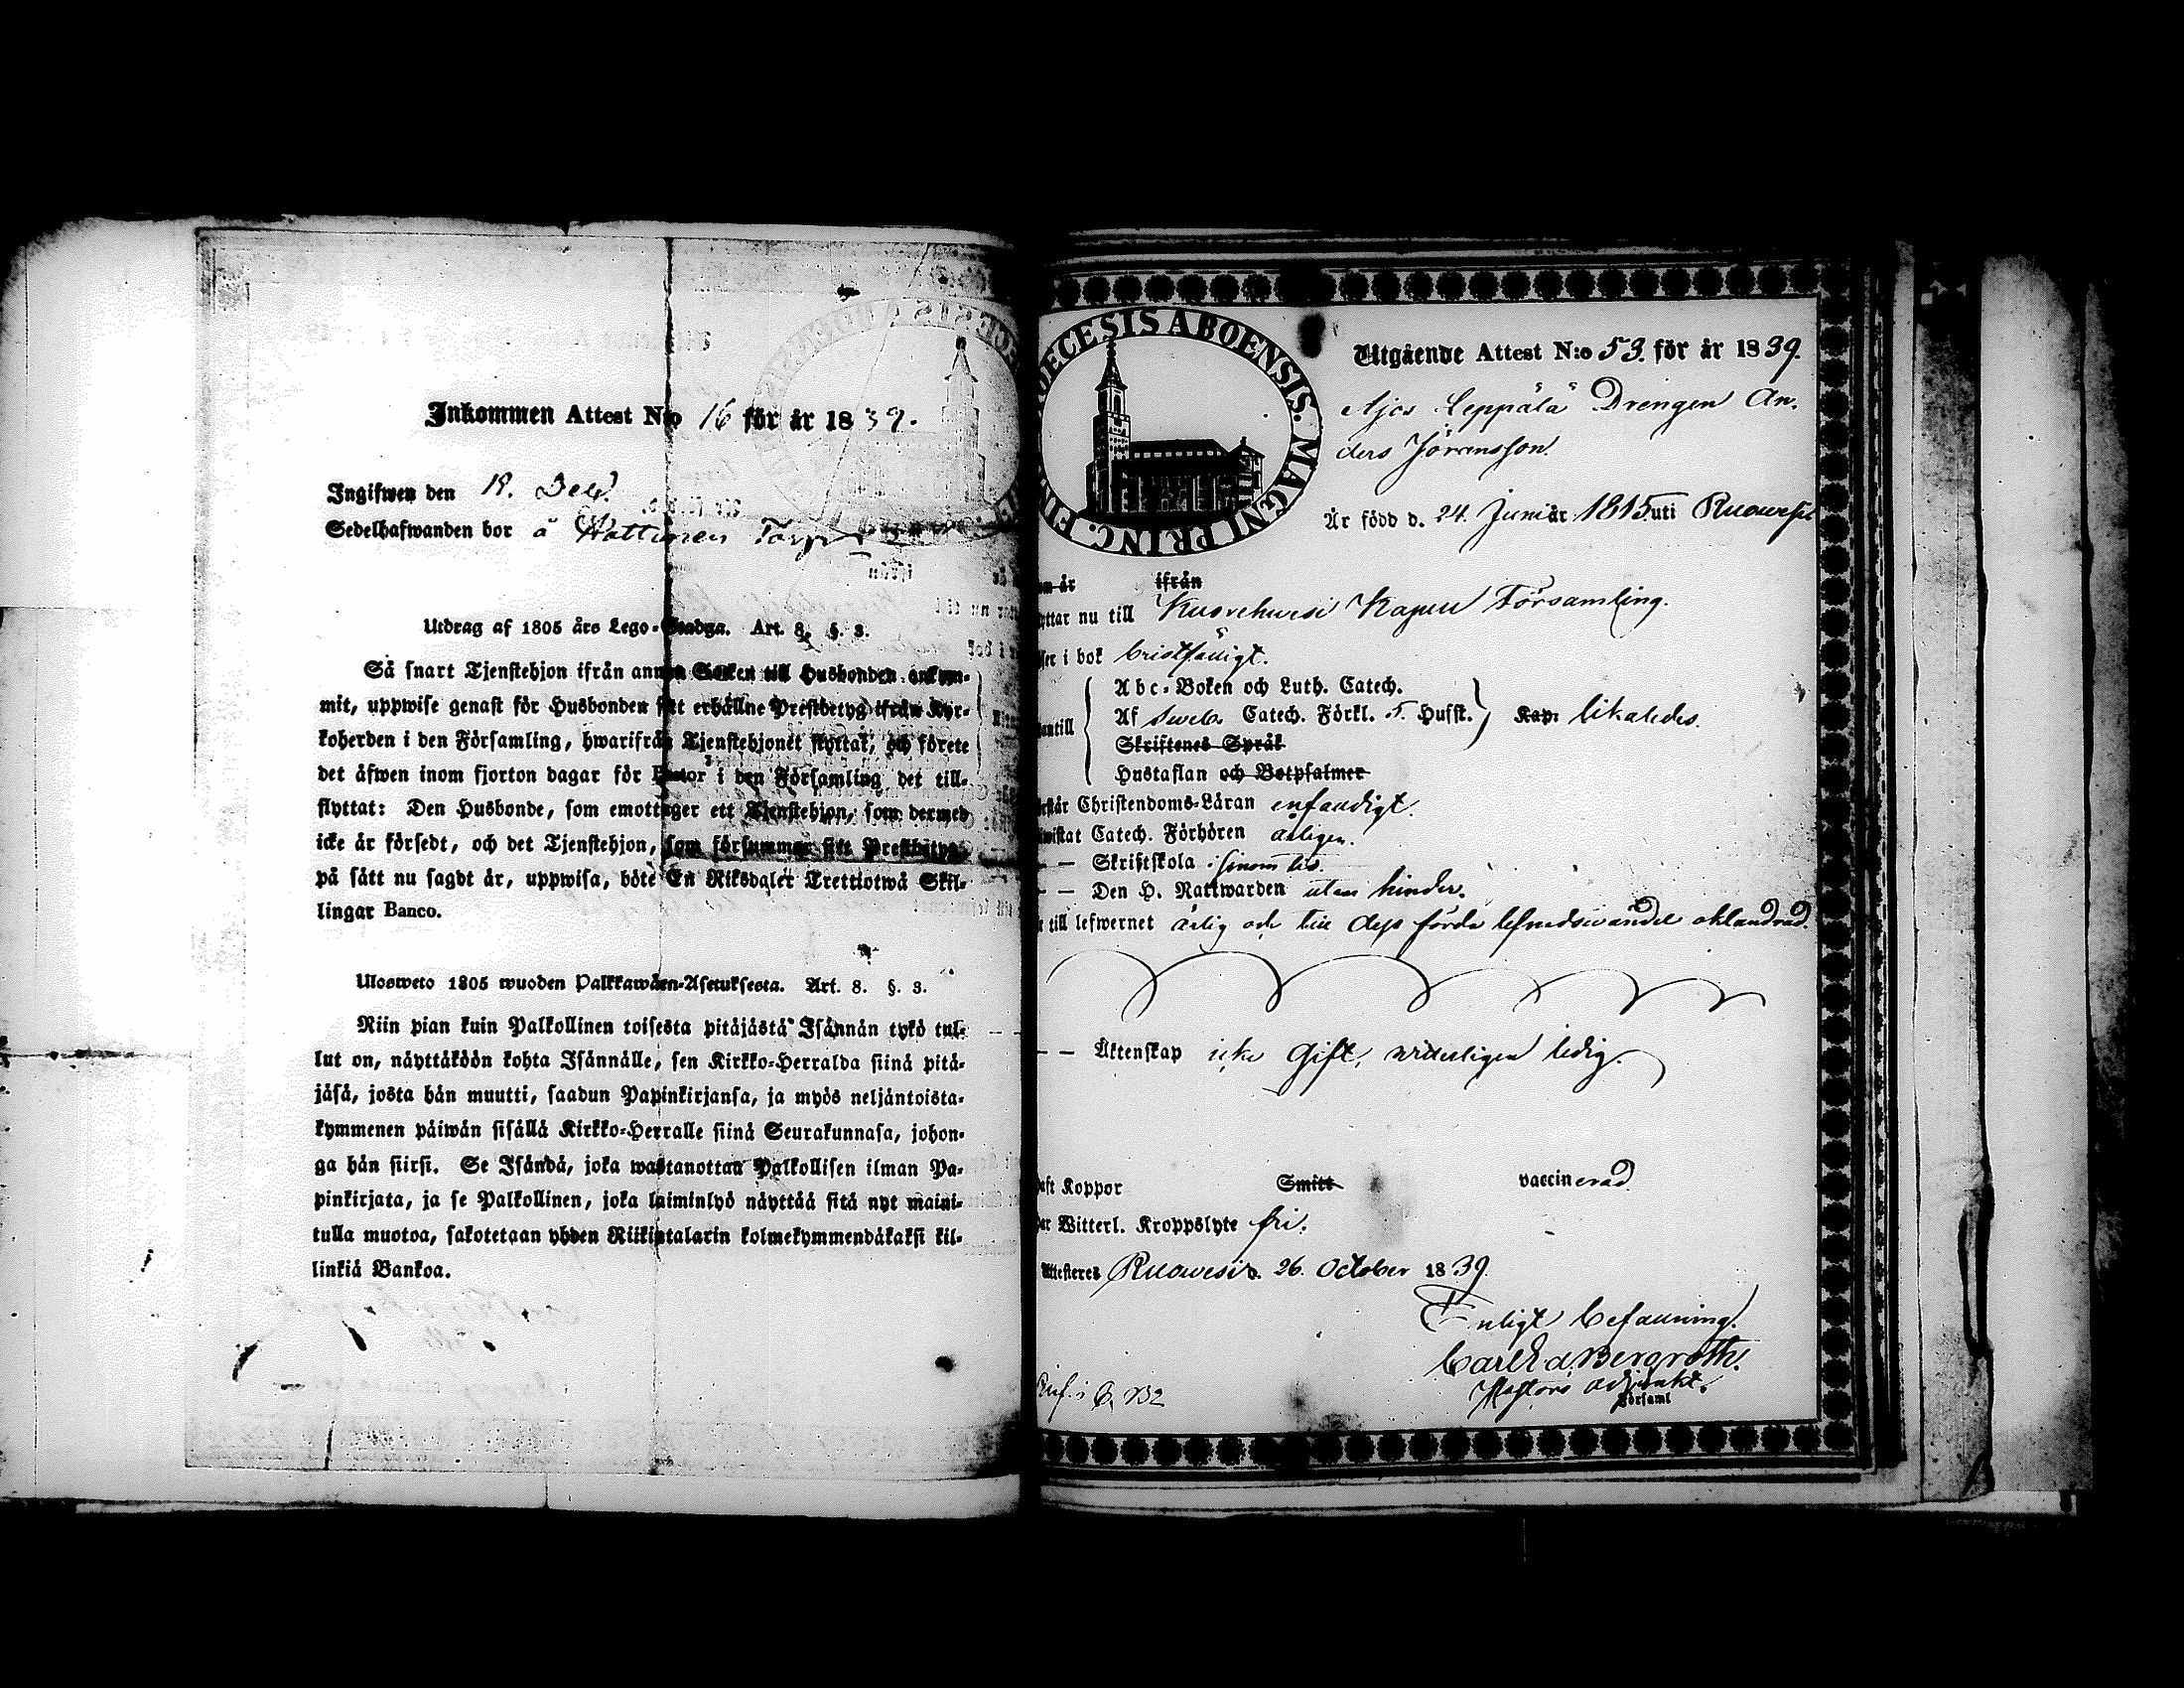 Inkommen Attest N:o 16 för år 1839.
Ingifwen den 18. Dec.
Sedelhafwanden bor å Wattunen Torp
Utdrag af 1805 års Lego-Stadga. Art. 8. §. 3.
Så snart Tjenstehjon ifrån annan Socken till Husbonden ankom-
mit, uppwise genast för Husbonden sitt erhållne Prestbetyg ifrån Kyr-
koherden i den Församling, hwarifrån Tjenstehjonet flyttat, och förete
det äfwen inom fjorton dagar för Pastor i den Församling det till-
flyttat: Den Husbonde, som emottager ett Tjenstehjon, som dermed
icke är försedt, och det Tjenstehjon, som försummar sitt Prestbetyg,
på sätt nu sagdt är, uppwisa, böte En Riksdaler Trettiotwå Skil-
lingar Banco.
Ulosweto 1805 wuoden Palkkawäen-Asetuksesta. Art. 8. §. 3.
Niin pian kuin Palkollinen toisesta pitäjästä Isännän tykö tul-
lut on, näyttäköön kohta Isännälle, sen Kirkko-Herralda siinä pitä-
jäsä, josta hän muutti, saadun Papinkirjansa, ja myös neljäntoista-
kymmenen päiwän sisällä Kirkko-Herralle siinä Seurakunnasa, johon-
ga hän siirsi. Se Isändä, joka wastanottaa Palkollisen ilman Pa-
pinkirjata, ja se Palkollinen, joka laiminlyö näyttää sitä nyt maini-
tulla muotoa, sakotetaan yhden Riikintalarin kolmekymmendäkaksi kil-
linkiä Bankoa.
DIOECESIS ABOENSIS. MAGNI PRINC. FIN
Utgående Attest N:o 53. för år 1839.
Ajos Leppälä Drengen An-
ders Jöransson.
Är född d. 24. Juni år 1815 uti Ruowesi
om år ifrån
yttar nu till Kuorehwesi Kapell Församling.
äser i bok bristfälligt.
Abc-Boken och Luth. Catech.
utantill Af Sweb. Catech. Förkl. 5. Hufst. Kap. likaledes.
Skriftenes Språk
Hustaflan och Botpsalmer
örstår Christendoms-Läran enfaldigt.
ewistat Catech. Förhören årligen.
— — Skriftskola genomgått.
— — Den H. Nattwarden utan hinder.
r till lefwernet ärlig och till dess förda lefnadswandel oklandrad.
— — Äktenskap icke gift, witterligen ledig.
haft Koppor Smitt vaccinerad
har Witterl. Kroppslyte fri.
Attesteres Ruowesi d. 26. October 1839.
Enligt befallning.
Carl Ed. Bergroth.
Pastors adjunkt.
Församl
Inf. i B. 132